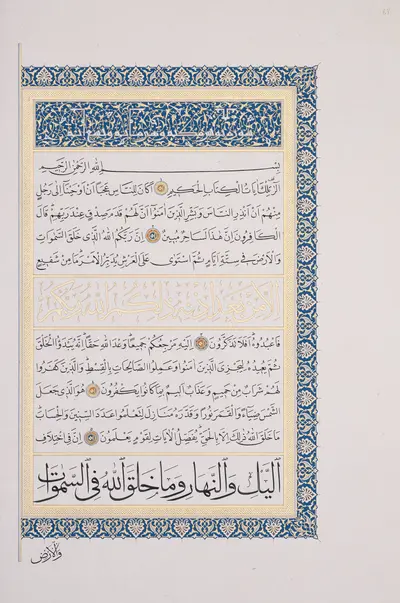 بِسْمِ اللهِ الرَّحْمٰنِ الرَّحِيمِ
الٓرٰ تِلْكَ اٰيَاتُ الْكِتَابِ الْحَكِيمِ اَكَانَ لِلنَّاسِ عَجَبًا اَنْ اَوْحَيْنَا اِلٰى رَجُلٍ
مِنْهُمْ اَنْ اَنْذِرِ النَّاسَ وَبَشِّرِ الَّذِينَ اٰمَنُوا اَنَّ لَهُمْ قَدَمَ صِدْقٍ عِنْدَ رَبِّهِمْ قَالَ
الْكَافِرُونَ اِنَّ هٰذَا لَسَاحِرٌ مُبِينٌ اِنَّ رَبَّكُمُ اللهُ الَّذِى خَلَقَ السَّمٰوَاتِ
وَالْاَرْضَ فِى سِتَّةِ اَيَّامٍ ثُمَّ اسْتَوٰى عَلَى الْعَرْشِ يُدَبِّرُ الْاَمْرَ مَا مِنْ شَفِيعٍ
اِلَّا مِنْ بَعْدِ اِذْنِهِ ذٰلِكُمُ اللهُ رَبُّكُمْ
فَاعْبُدُوهُ اَفَلَا تَذَكَّرُونَ اِلَيْهِ مَرْجِعُكُمْ جَمِيعًا وَعْدَ اللهِ حَقًّا اِنَّهُ يَبْدَؤُا الْخَلْقَ
ثُمَّ يُعِيدُهُ لِيَجْزِىَ الَّذِينَ اٰمَنُوا وَعَمِلُوا الصَّالِحَاتِ بِالْقِسْطِ وَالَّذِينَ كَفَرُوا
لَهُمْ شَرَابٌ مِنْ حَمِيمٍ وَعَذَابٌ اَلِيمٌ بِمَا كَانُوا يَكْفُرُونَ هُوَ الَّذِى جَعَلَ
الشَّمْسَ ضِيَاءً وَالْقَمَرَ نُورًا وَقَدَّرَهُ مَنَازِلَ لِتَعْلَمُوا عَدَدَ السِّنِينَ وَالْحِسَابَ
مَا خَلَقَ اللهُ ذٰلِكَ اِلَّا بِالْحَقِّ يُفَصِّلُ الْاٰيَاتِ لِقَوْمٍ يَعْلَمُونَ اِنَّ فِى اخْتِلَافِ
الَّيْلِ وَالنَّهَارِ وَمَا خَلَقَ اللهُ فِى السَّمٰوَاتِ
وَالْاَرْضِ